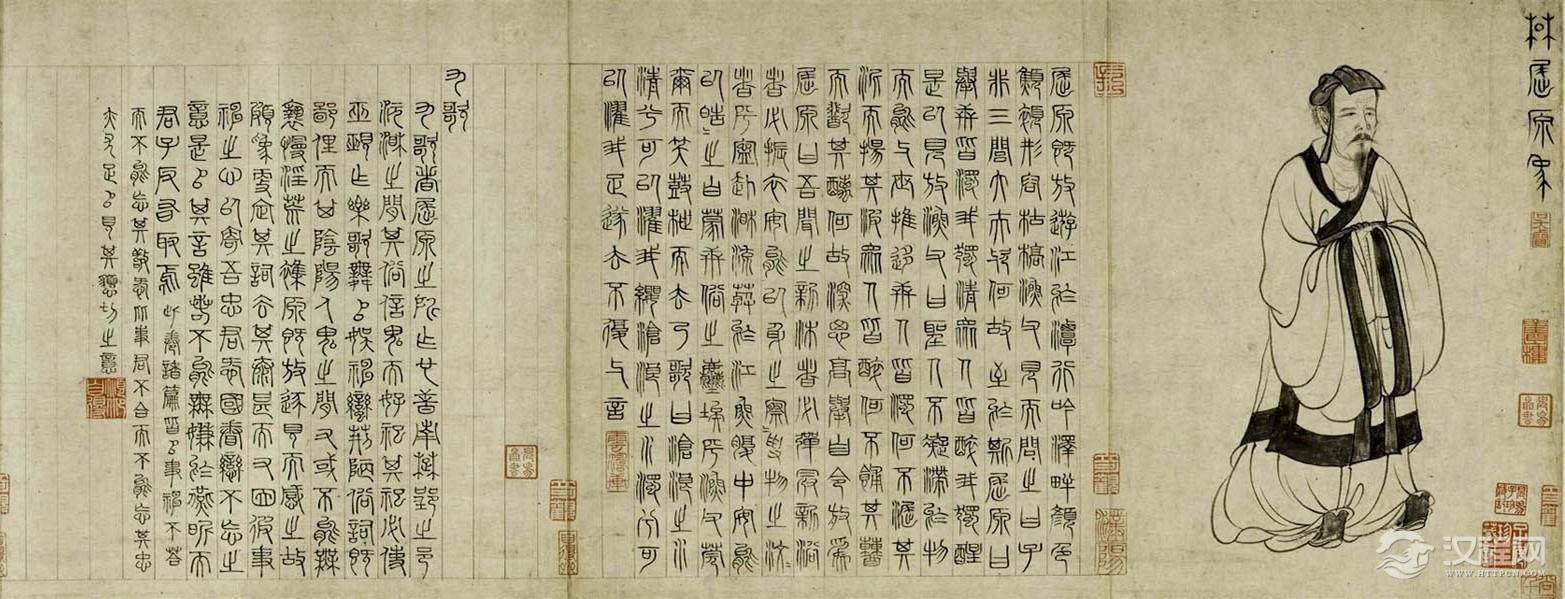 楚屈原像
屈原既放遊江於潭行吟澤畔顏色
顦顇形容枯槁漁父見而問之曰子
非三閭大夫與何故至於斯屈原曰
舉世皆濁我獨清衆人皆醉我獨醒
是以見放漁父曰聖人不凝滯於物
而能与世推迻世人皆濁何不淈其
泥而揚其波衆人皆醉何不餔其醩
而歠其醨何故深思高舉自令放爲
屈原曰吾聞之新沐者必彈冠新浴
者必振衣安能以身之察=受物之汶=
者乎寧赴湘流葬於江魚腹中安能
以皓=之白蒙世俗之塵埃乎漁父莞
爾而笑鼓枻而去乃歌曰滄浪之水
清兮可以濯我纓滄浪之水濁兮可
以濯我足遂去不復与言
九歌
九歌者屈原之所作也昔南楚郢之邑
沅湘之間其俗信鬼而好祀其祀必使
巫覡作樂歌舞以娛神蠻荊陋俗詞既
鄙俚而其陰陽人鬼之間又或不能無
褻慢淫荒之雜原既放逐見而感之故
頗爲更定其詞去其泰甚而又因彼事
神之心以寄吾忠君愛國眷戀不忘之
意是以其言雖若不能無嫌於燕昵而
君子反有取焉此卷諸篇皆以事神不答
而不能忘其敬愛比事君不合而不能忘其忠
赤尤足以見其懇切之意
汉程网
WWW.HTTPCN.COM